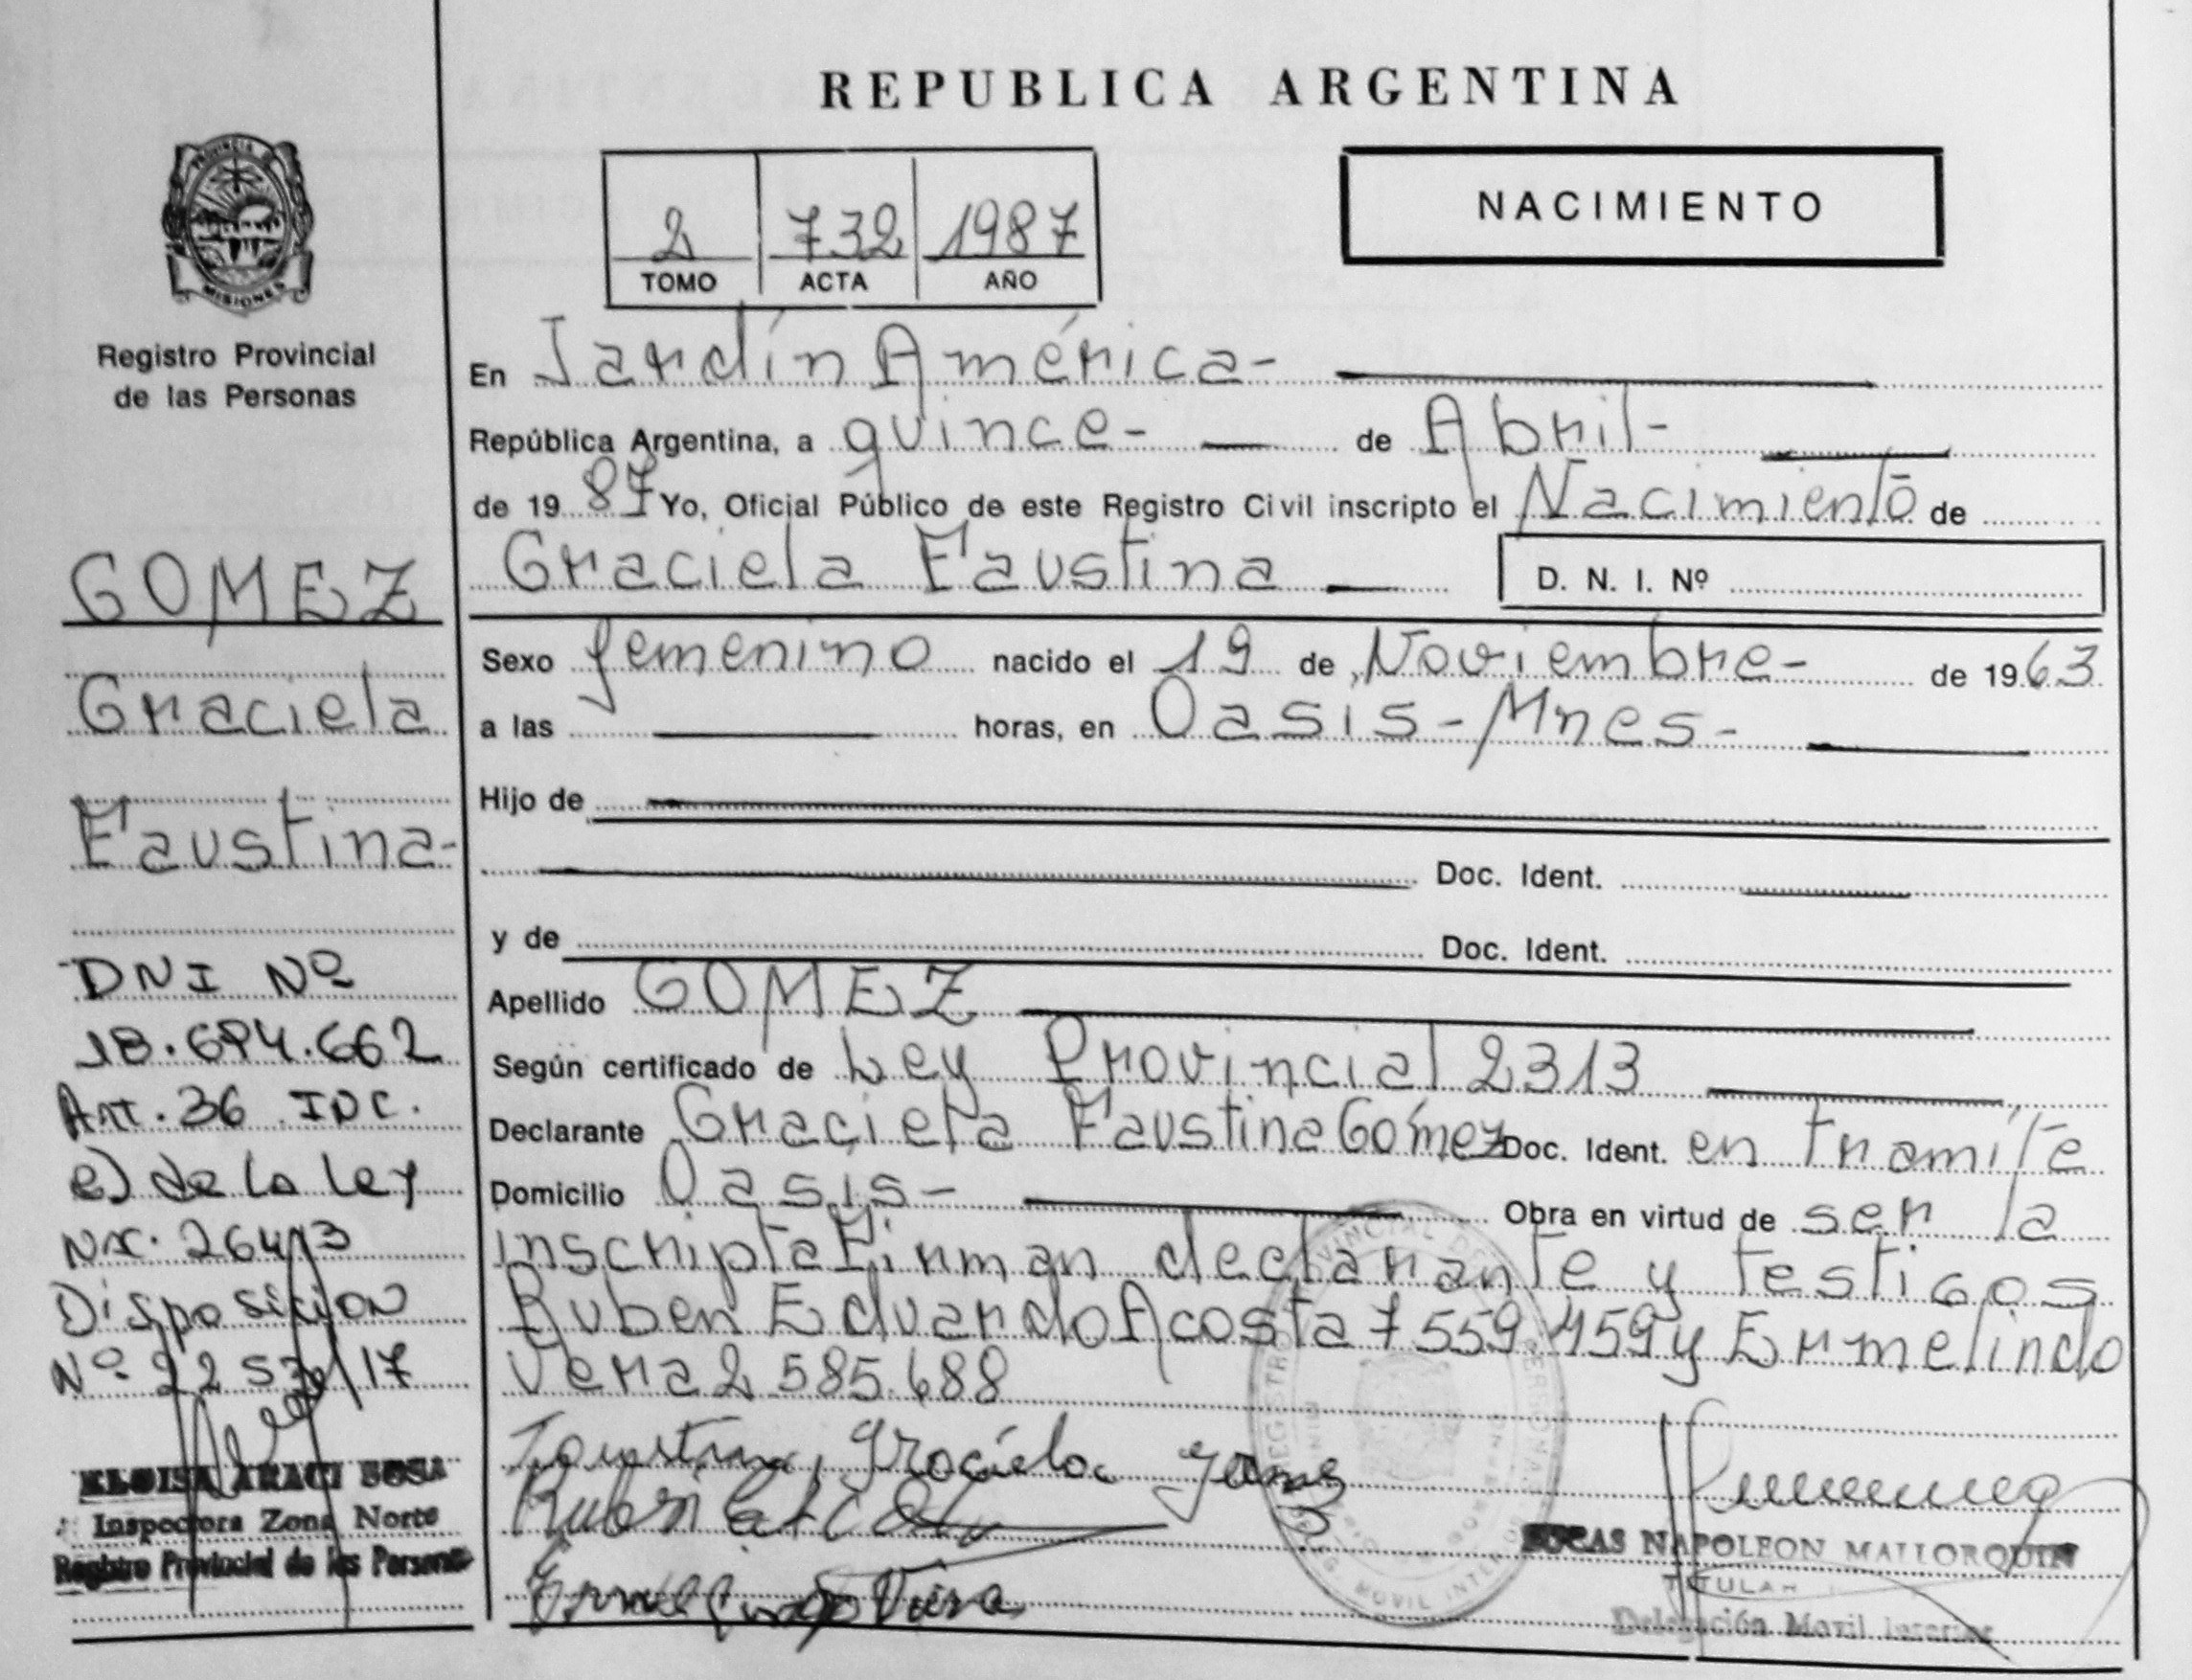 REPUBLICA ARGENTINA
PROVINCIA DE
MISIONES
Registro Provincial
de las Personas
2 732 1987
TOMO ACTA AÑO
NACIMIENTO
En Jardín América-
República Argentina, a quince- de Abril-
de 1987 Yo, Oficial Público de este Registro Civil inscripto el Nacimiento de
Graciela Faustina D. N. I. Nº
Sexo femenino nacido el 19 de Noviembre- de 1963
a las horas, en Oasis-Mnes-
Hijo de
Doc. Ident.
y de Doc. Ident.
Apellido GOMEZ
Según certificado de Ley Provincial 2313
Declarante Graciela Faustina Gómez Doc. Ident. en tramite
Domicilio Oasis- Obra en virtud de ser la
inscripta Firman declarante y testigos
Ruben Eduardo Acosta 7559459 y Ermelindo
Vera 2585.688
GOMEZ
Graciela
Faustina-
DNI Nº
18.694.662
Art. 36 INC.
e) de la Ley
26413
Disposicion
Nº
ELOISA ARACI SOSA
Inspectora Zona Norte
Registro Provincial de las Personas
Faustina, Graciela
Ruben
Vera
LUCAS NAPOLEON MALLORQUIN
TITULAR
Delegación Movil Interior